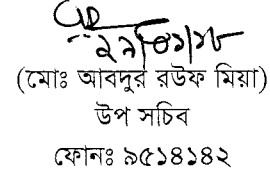 ২৯/০১/১৮
(মোঃ আবদুর রউফ মিয়া)
উপ সচিব
ফোনঃ ৯৫১৪১৪২